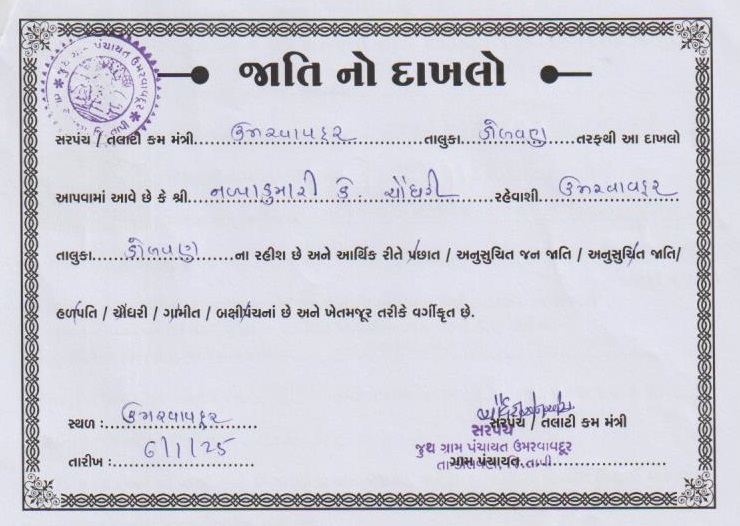 જુથ ગ્રામ પંચાયત ઉમરવાવદૂર
જિ. તાપી
જાતિ નો દાખલો
સરપંચ / તલાટી કમ મંત્રી ઉમરવાવદુર તાલુકા ડોલવણ તરફથી આ દાખલો
આપવામાં આવે છે કે શ્રી કે. ચૌધરી રહેવાશી ઉમરવાવદુર
તાલુકા ડોલવણ ના રહીશ છે અને આર્થિક રીતે પછાત / અનુસુચિત જન જાતિ / અનુસુચિત જાતિ/
હળપતિ / ચૌધરી / ગામીત / બક્ષીપંચનાં છે અને ખેતમજૂર તરીકે વર્ગીકૃત છે.
સ્થળ : ઉમરવાવદુર
તારીખ : 6/1/25
સરપંચ / તલાટી કમ મંત્રી
સરપંચ
જુથ ગ્રામ પંચાયત ઉમરવાવદૂર
ગ્રામ પંચાયત
તા.ડોલવણ, જિ.તાપી